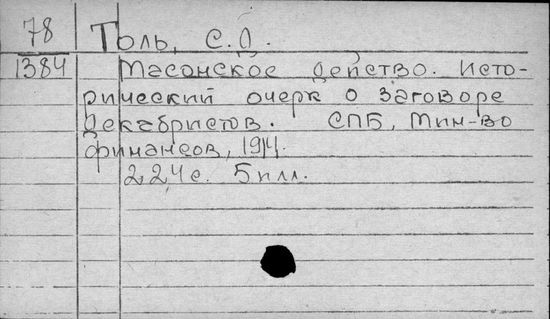 78 Толь, С.Д.
1384 Масонское действо. Исто-
рический очерк о заговоре
декабристов. СПБ, Мин-во
финансов, 1914.
224 с. 5 илл.